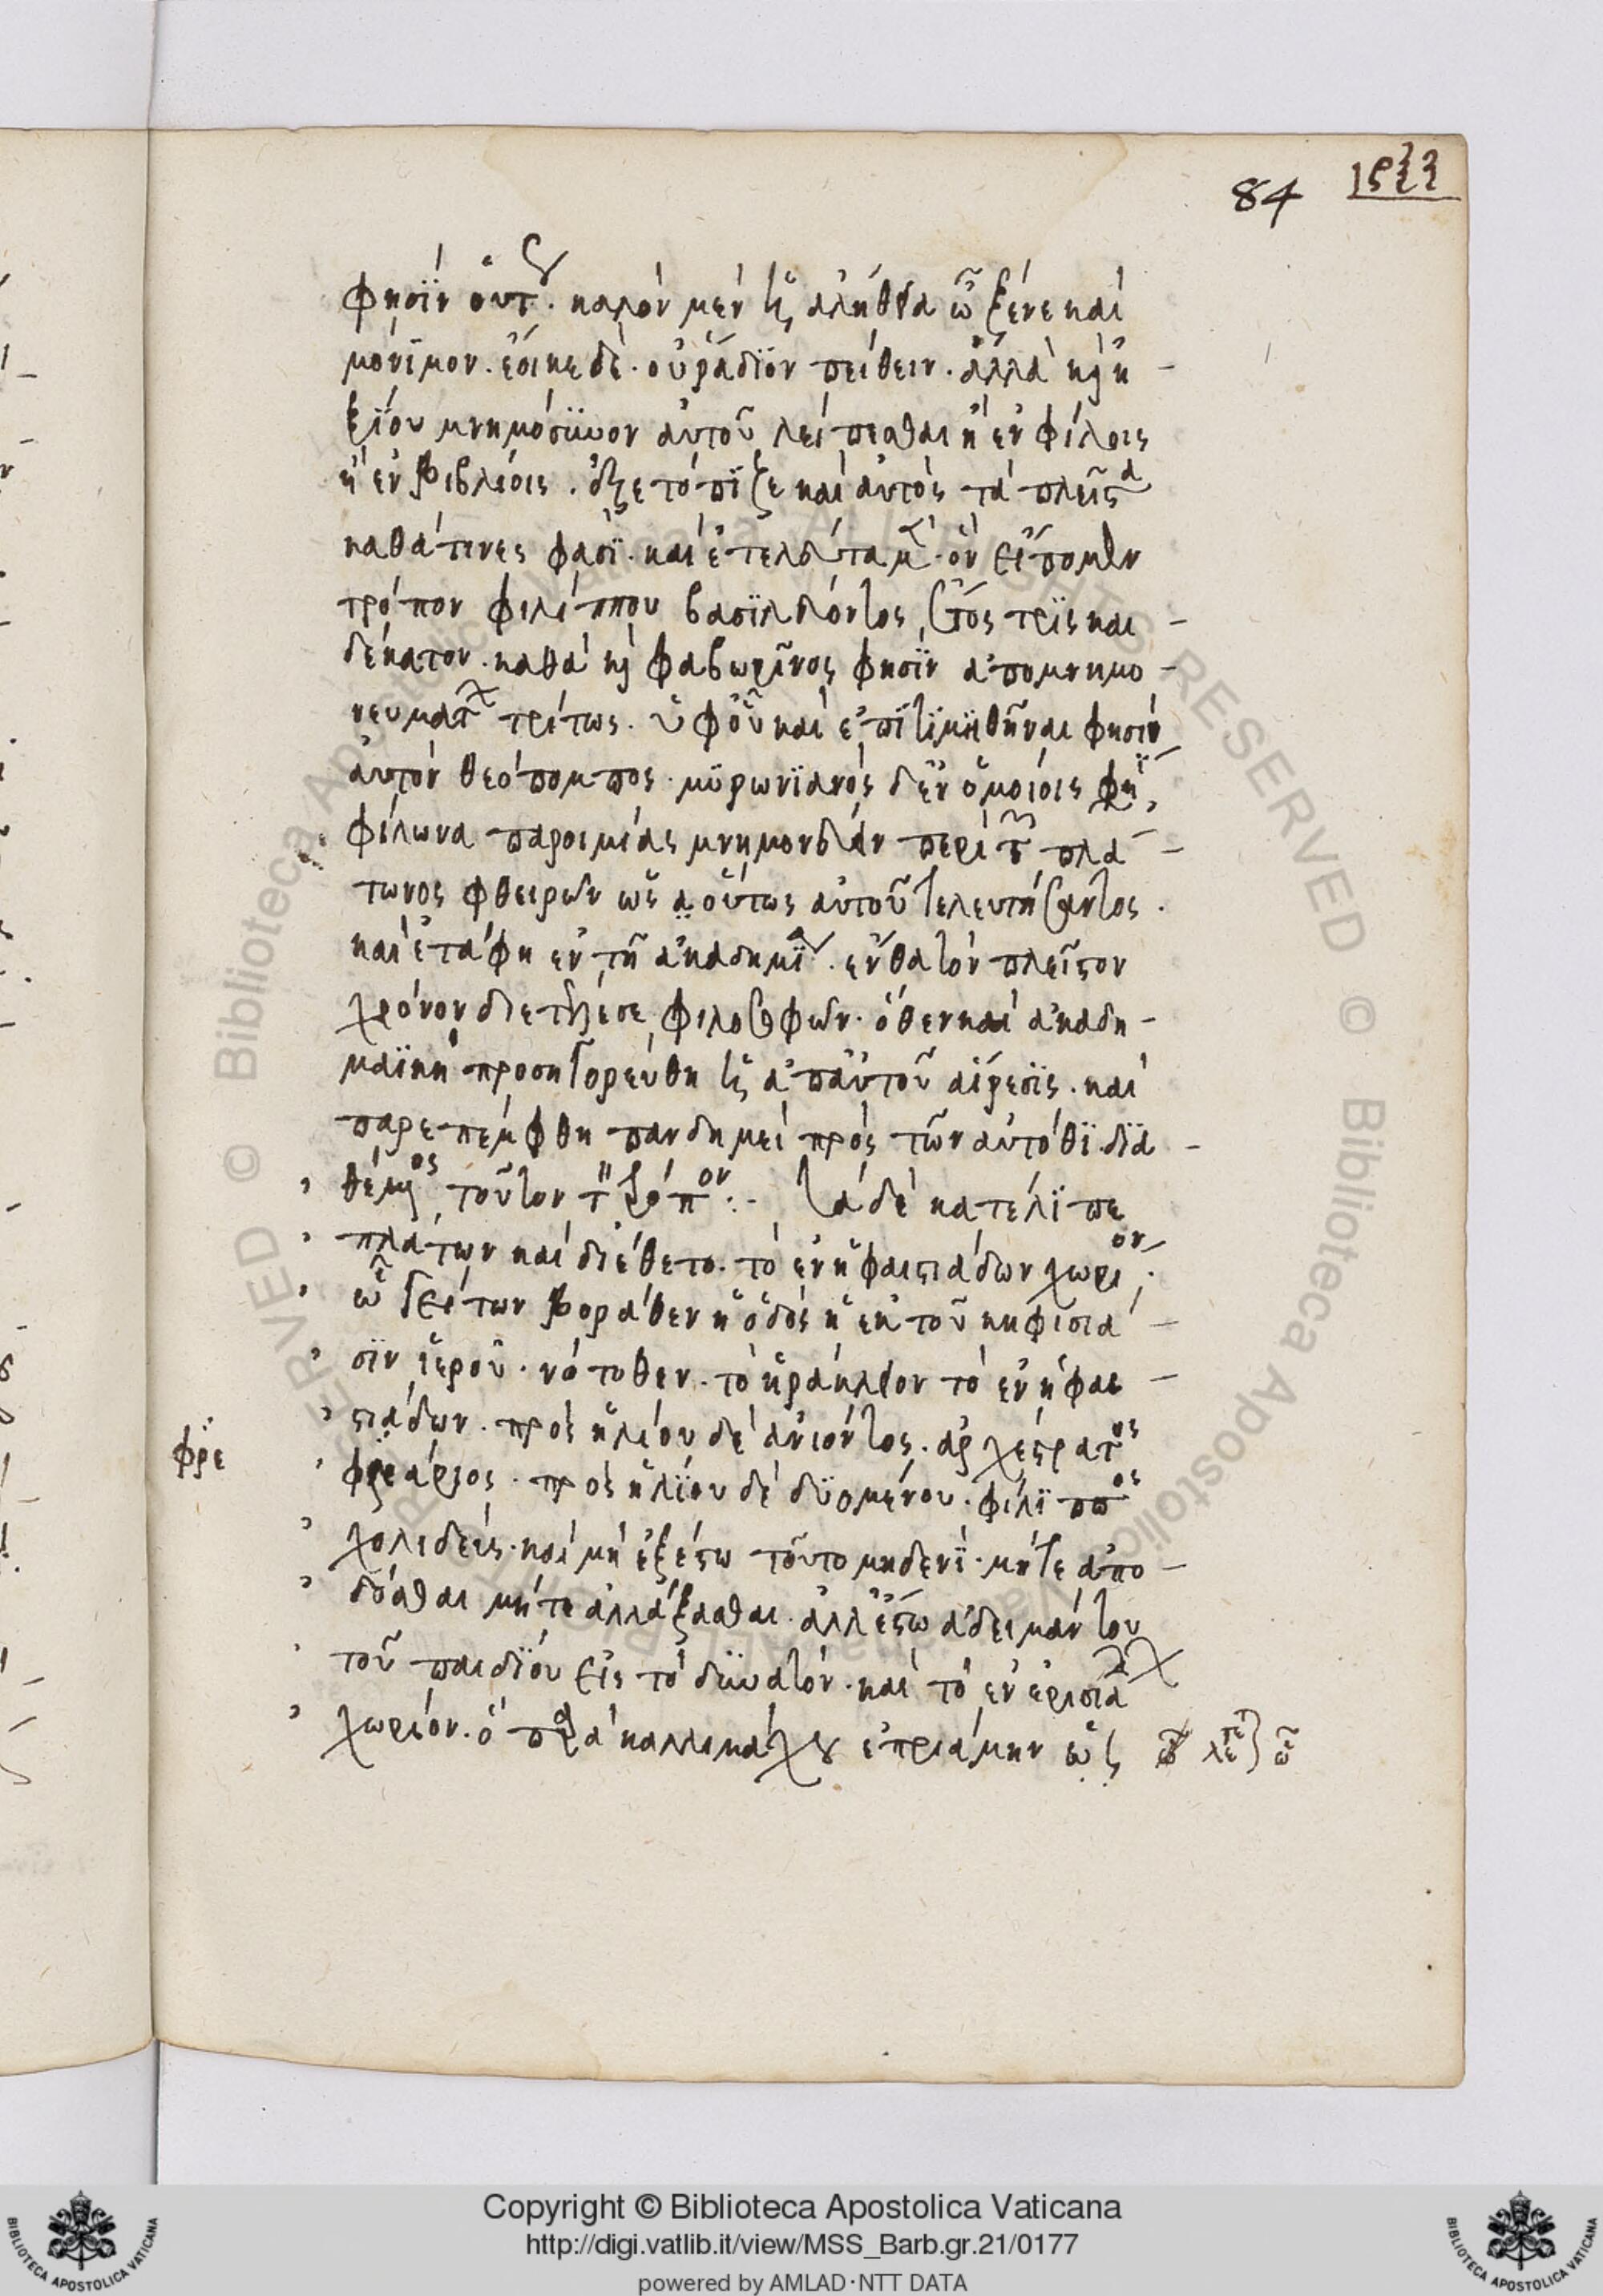 84
φησϊν οὕτως. καλὸν μὲν ἡ ἀλήθεια ὦ ξένε καὶ
μόνϊμον. ἔοικε δὲ. οὐ ῥάδϊον πείθειν. ἀλλὰ καὶ ἠ-
ξϊου μνημόσϋνον αὐτοῦ λείπεσθαι ἢ ἐν φίλοις
ἢ ἐν βιβλίοις. ἐξετόπϊζε καὶ αὐτὸς τὰ πλεῖστα
καθά τινες φασϊ. καὶ ἐτελεύτα μὲν. ὃν εἴπομεν
τρόπον φιλίππου βασϊλεύοντος ἔτος τρϊς και-
δέκατον. καθὰ καὶ φαβωρῖνος φησϊν ἀπομνημο-
νευμάτων τρίτως. ὑφοὗ καὶ ἐπϊτϊμϊθῆναι φησιν
αὐτὸν θεόπομπος. μϋρωνϊανὸς δ' ἐν ὁμοίοις φησϊ,
φίλωνα παροιμίας μνημονεύειν περὶ τῶν πλά-
τωνος φθειρῶν ὡς οὕτως αὐτοῦ τελευτήσαντος.
καὶ ἐτάφη ἐν τῇ ἀκαδημϊα. ἔνθα τὸν πλεῖστον
χρόνον διετέλεσε φιλοσοφῶν. ὅθεν καὶ ἀκαδη-
μαϊκὴ προσηγορεύθη ἡ ἀπ' αὐτοῦ αἵρεσϊς. καὶ
παρεπέμφθη πανδημεὶ πρὸς τῶν αὐτόθϊ. δϊα-
θέμενος τοῦτον τὸν τρόπον:. τάδε κατέλϊπε
πλάτων καὶ διέθετο. τὸ ἐν ἡφαιστιάδων χωρίον.
ὧ γείτων βοράθεν ἡ ὁδὸς ἡ ἐκ τοῦ κηφισιᾶ-
σϊν ἱεροῦ. νότοθεν. τὸ ἡράκλειον τὸ ἐν ἡφαι-
στιάδων. πρὸς ἡλίου δὲ ἀνιόντος. ἀρχέστρατος
φρε
φρεάρϊος. πρὸς ἡλϊου δὲ δϋομένου. φίλϊππος
χολιδεύς. καὶ μὴ ἐξέστω τοῦτο μηδενϊ. μήτε ἀπο-
δόσθαι μήτε ἀλλάξασθαι. ἀλλ' ἔστω ἀδειμάντου
τοῦ παιδϊου εἰς τὸ δϋνατόν. καὶ τὸ ἐν ἐρισιαδῶν
χωρίον. ὃ παρὰ καλλιμάχου ἐπριάμην ὡς
Copyright © Biblioteca Apostolica Vaticana
http://digi.vatlib.it/view/MSS_Barb.gr.21/0177
powered by AMLAD·NTT DATA